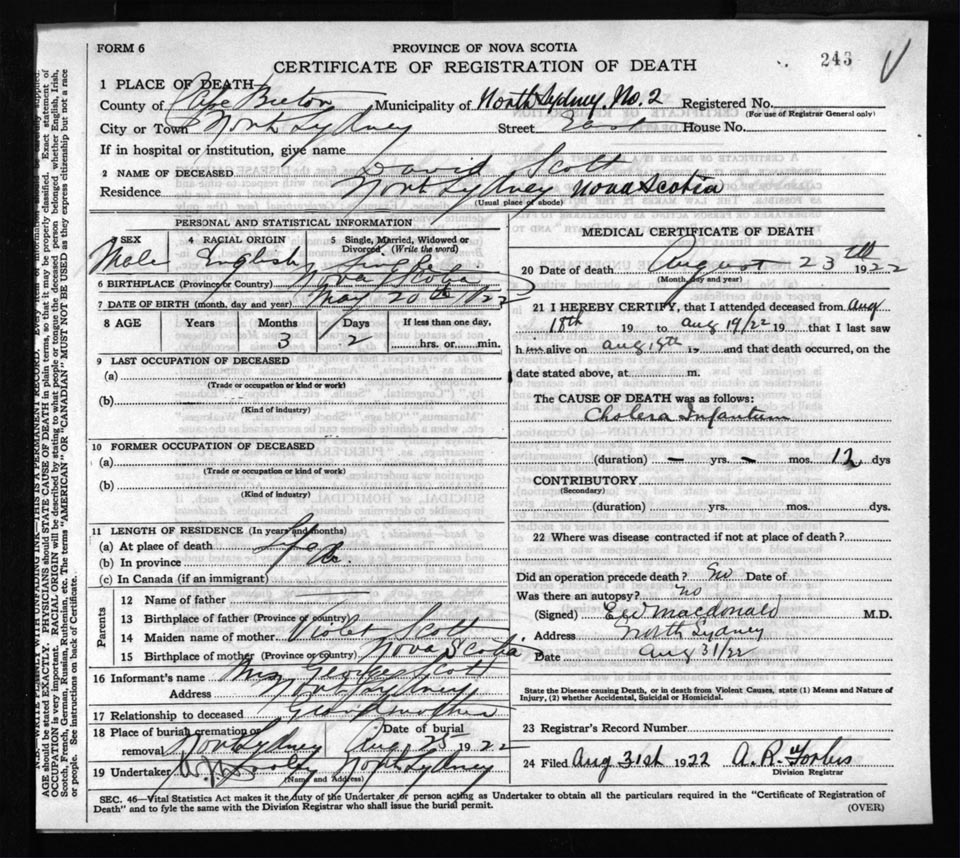 FORM 6
PROVINCE OF NOVA SCOTIA
243
CERTIFICATE OF REGISTRATION OF DEATH
1 PLACE OF DEATH
County of Cape Breton Municipality of North Sydney. No. 2 Registered No.
(For use of Registrar General only)
City or Town North Sydney Street East House No.
If in hospital or institution, give name
2 NAME OF DECEASED David Scott
Residence North Sydney Nova Scotia
(Usual place of abode)
PERSONAL AND STATISTICAL INFORMATION
3 SEX 4 RACIAL ORIGIN 5 Single, Married, Widowed or Divorced (Write the word)
Male English Single
6 BIRTHPLACE (Province or Country) Nova Scotia
7 DATE OF BIRTH (month, day and year) May 20th 1922
8 AGE Years Months Days If less than one day,
3 2 hrs. or min.
9 LAST OCCUPATION OF DECEASED
(a)
(Trade or occupation or kind or work)
(b)
(Kind of industry)
10 FORMER OCCUPATION OF DECEASED
(a)
(Trade or occupation or kind of work)
(b)
(Kind of industry)
11 LENGTH OF RESIDENCE (In years and months)
(a) At place of death Life
(b) In province Do.
(c) In Canada (if an immigrant)
Parents
12 Name of father
13 Birthplace of father (Province or country)
14 Maiden name of mother Violet Scott
15 Birthplace of mother (Province or country) Nova Scotia
16 Informant's name Mrs George Scott
Address North Sydney
17 Relationship to deceased Grandmother
18 Place of burial, cremation or removal Date of burial
North Sydney Aug 25 1922
19 Undertaker North Sydney
(Name and Address)
MEDICAL CERTIFICATE OF DEATH
20 Date of death August 23th 1922
(Month, day and year)
21 I HEREBY CERTIFY, that I attended deceased from Aug
18th 19 to Aug 19/22 19 that I last saw
him alive on Aug 19th 19 and that death occurred, on the
date stated above, at m.
The CAUSE OF DEATH was as follows:
Cholera Infantum
(duration) — yrs. — mos. 12 dys
CONTRIBUTORY
(Secondary)
(duration) yrs. mos. dys.
22 Where was disease contracted if not at place of death?
Did an operation precede death? No Date of
Was there an autopsy? no
(Signed) Macdonald M.D.
Address North Sydney
Date Aug 31/22
State the Disease causing Death, or in death from Violent Causes, state (1) Means and Nature of
Injury, (2) whether Accidental, Suicidal or Homicidal.
23 Registrar's Record Number
24 Filed Aug 31st 1922 A. R. Forbes
Division Registrar
SEC. 46—Vital Statistics Act makes it the duty of the Undertaker or person acting as Undertaker to obtain all the particulars required in the "Certificate of Registration of
Death" and to fyle the same with the Division Registrar who shall issue the burial permit.
(OVER)
N.B.—WRITE PLAINLY WITH UNFADING INK—THIS IS A PERMANENT RECORD. Every item of information should be carefully supplied.
AGE should be stated EXACTLY. PHYSICIANS should STATE CAUSE OF DEATH in plain terms, so that it may be properly classified. Exact statement of
OCCUPATION is very important. RACIAL ORIGIN will be described by stating to what people or tongue the deceased person belonged whether English, Irish,
Scotch, French, German, Russian, Ruthenian, etc. The terms "AMERICAN" OR "CANADIAN" MUST NOT BE USED as they express citizenship but not a race
or people. See instructions on back of Certificate.